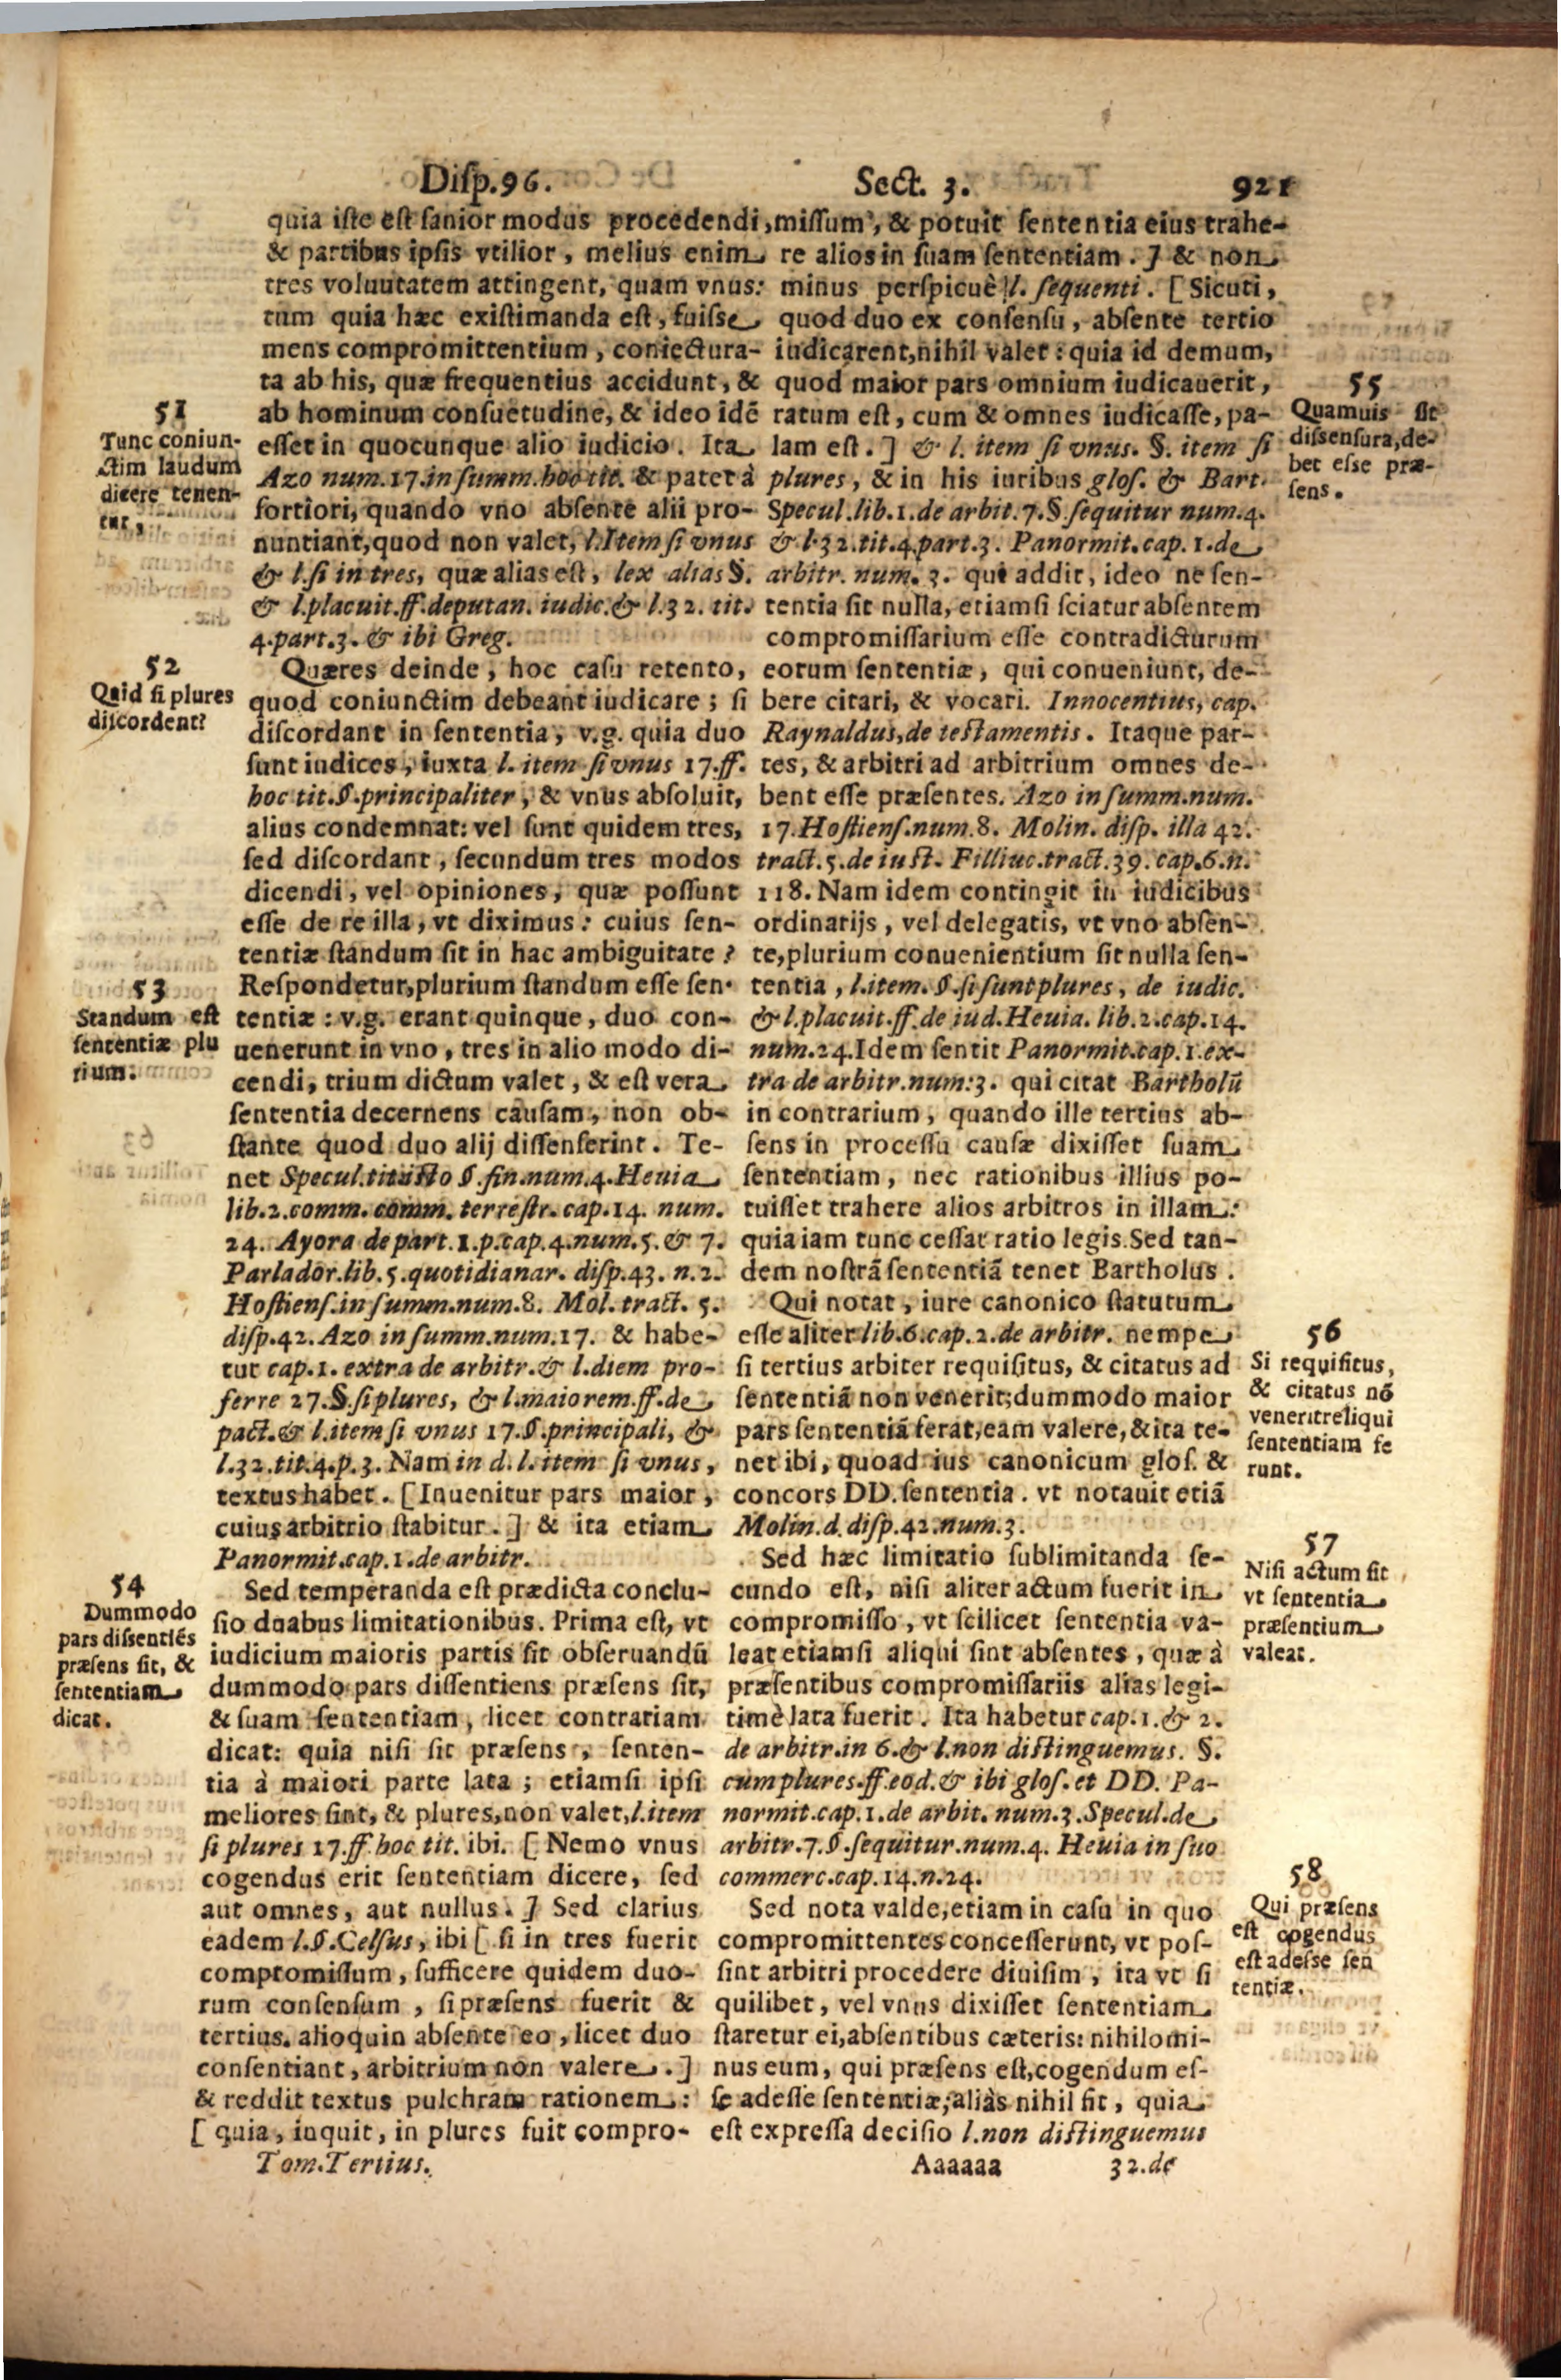 Disp.96. Sect. 3. 921
quia iste est sanior modus procedendi,
& partibus ipsis vtilior, melius enim
tres voluutatem attingent, quam vnus:
tum quia hæc existimanda est, fuisse
mens compromittentium, coniectura-
ta ab his, quæ frequentius accidunt, &
ab hominum consuetudine, & ideo idē
esset in quocunque alio iudicio. Ita
Azo num.17.in summ.hoc tit. & patet à
fortiori, quando vno absente alii pro-
nuntiant,quod non valet, l.Item si vnus
& l.si in tres, quæ alias est, lex alias §.
& l.placuit.ff.deputan. iudic.& l.32. tit.
4.part.3. & ibi Greg.
Quæres deinde, hoc casu retento,
quod coniunctim debeant iudicare; si
discordant in sententia, v.g. quia duo
sunt iudices, iuxta l. item si vnus 17.ff.
hoc tit.§.principaliter, & vnus absoluit,
alius condemnat: vel sunt quidem tres,
sed discordant, secundum tres modos
dicendi, vel opiniones, quæ possunt
esse de re illa, vt diximus: cuius sen-
tentiæ standum sit in hac ambiguitate?
Respondetur,plurium standum esse sen-
tentiæ: v.g. erant quinque, duo con-
uenerunt in vno, tres in alio modo di-
cendi, trium dictum valet, & est vera
sententia decernens causam, non ob-
stante quod duo alij dissenserint. Te-
net Specul.tit.isto §.fin.num.4.Heuia
lib.2.comm. comm. terrestr. cap.14. num.
24. Ayora de part.1.p.cap.4.num.5.& 7.
Parlador.lib.5.quotidianar. disp.43. n.2.
Hostiens.in summ.num.8. Mol. tract. 5.
disp.42. Azo in summ.num.17. & habe-
tur cap.1. extra de arbitr.& l.diem pro-
ferre 27.§.si plures, & l.maiorem.ff.de
pact.& l.item si vnus 17.§.principali, &
l.32.tit.4.p.3. Nam in d. l. item si vnus,
textus habet. [Inuenitur pars maior,
cuius arbitrio stabitur.] & ita etiam
Panormit.cap.1.de arbitr.
Sed temperanda est prædicta conclu-
sio duabus limitationibus. Prima est, vt
iudicium maioris partis sit obseruandū
dummodo pars dissentiens præsens sit,
& suam sententiam, licet contrariam
dicat: quia nisi sit præsens, senten-
tia à maiori parte lata; etiamsi ipsi
meliores sint, & plures,non valet,l.item
si plures 17.ff hoc tit. ibi. [Nemo vnus
cogendus erit sententiam dicere, sed
aut omnes, aut nullus.] Sed clarius
eadem l.§.Celsus, ibi [si in tres fuerit
compromissum, sufficere quidem duo-
rum consensum, si præsens fuerit &
tertius. alioquin absente eo, licet duo
consentiant, arbitrium non valere.]
& reddit textus pulchram rationem:
[quia, inquit, in plures fuit compro-
Tom.Tertius.
51
Tunc coniun-
ctim laudum
dicere tenen-
tur,
52
Quid si plures
discordent?
53
Standum est
sententiæ plu
rium.
54
Dummodo
pars dissentiēs
præsens sit, &
sententiam
dicat.
missum, & potuit sententia eius trahe-
re alios in suam sententiam.] & non
minus perspicuè l. sequenti. [Sicuti,
quod duo ex consensu, absente tertio
iudicarent,nihil valet: quia id demum,
quod maior pars omnium iudicauerit,
ratum est, cum & omnes iudicasse, pa-
lam est.] & l. item si vnus. §. item si
plures, & in his iuribus glos. & Bart.
Specul.lib.1.de arbit.7.§ sequitur num.4.
& l.32.tit.4.part.3. Panormit.cap.1.de
arbitr. num. 3. qui addit, ideo ne sen-
tentia sit nulla, etiamsi sciatur absentem
compromissarium esse contradicturum
eorum sententiæ, qui conueniunt, de-
bere citari, & vocari. Innocentius, cap.
Raynaldus,de testamentis. Itaque par-
tes, & arbitri ad arbitrium omnes de-
bent esse præsentes. Azo in summ.num.
17.Hostiens.num.8. Molin. disp. illa 42.
tract.5.de iust. Filliuc.tract.39.cap.6.n.
118. Nam idem contingit in iudicibus
ordinarijs, vel delegatis, vt vno absen-
te,plurium conuenientium sit nulla sen-
tentia, l.item. §.si sunt plures, de iudic.
& l.placuit.ff.de iud.Heuia. lib.2.cap.14.
num.24.Idem sentit Panormit.cap.1.ex-
tra de arbitr.num:3. qui citat Bartholū
in contrarium, quando ille tertius ab-
sens in processu causæ dixisset suam
sententiam, nec rationibus illius po-
tuisset trahere alios arbitros in illam:
quia iam tunc cessat ratio legis.Sed tan-
dem nostrā sententiā tenet Bartholus.
Qui notat, iure canonico statutum
esse aliter lib.6.cap.2.de arbitr. nempe
si tertius arbiter requisitus, & citatus ad
sententiā non venerit;dummodo maior
pars sententiā ferat,eam valere,& ita te-
net ibi, quoad ius canonicum glos. &
concors DD.sententia. vt notauit etiā
Molin.d.disp.42.num.3.
Sed hæc limitatio sublimitanda se-
cundo est, nisi aliter actum fuerit in
compromisso, vt scilicet sententia va-
leat etiamsi aliqui sint absentes, quæ à
præsentibus compromissariis alias legi-
timè lata fuerit. Ita habetur cap.1.& 2.
de arbitr.in 6.& l.non distinguemus. §.
cum plures.ff.eod.& ibi glos.et DD. Pa-
normit.cap.1.de arbit. num.3.Specul.de
arbitr.7.§.sequitur.num.4. Heuia in suo
commerc.cap.14.n.24.
Sed nota valde,etiam in casu in quo
compromittentes concesserunt, vt pos-
sint arbitri procedere diuisim, ita vt si
quilibet, vel vnus dixisset sententiam
staretur ei,absentibus cæteris: nihilomi-
nus eum, qui præsens est,cogendum es-
se adesse sententiæ;aliàs nihil fit, quia
est expressa decisio l.non distinguemus
Aaaaaa 32.de
55
Quamuis sit
dissensura,de-
bet esse præ-
sens.
56
Si requisitus,
& citatus nō
venerit reliqui
sententiam fe
runt.
57
Nisi actum sit
vt sententia
præsentium
valeat.
58
Qui præsens
est cogendus
est adesse sen
tentiæ.